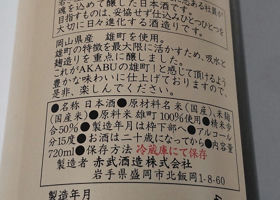 志ある社員が
目指すものは、妥協せず仕込みひとつひとつを
大切に日々進化する酒造りです。
岡山県産 雄町を使用。
雄町の特徴を最大限に活かすため、吸水と
麹造りを重点に醸しました。
これがAKABUの雄町!と感じて頂けるよう
豊かな味わいに仕上げておりますので、
是非、楽しんでください。
●名称 日本酒 ●原材料名 米(国産)、米麹
(国産米) ●原料米 雄町100%使用 ●精米歩
合50% ●製造年月は枠下部へ ●アルコール
分15度 ●お酒は二十歳になってから ●内容量
720ml ●保存方法 冷蔵庫にて保存
製造者 赤武酒造株式会社
岩手県盛岡市北飯岡1-8-60
製造年月